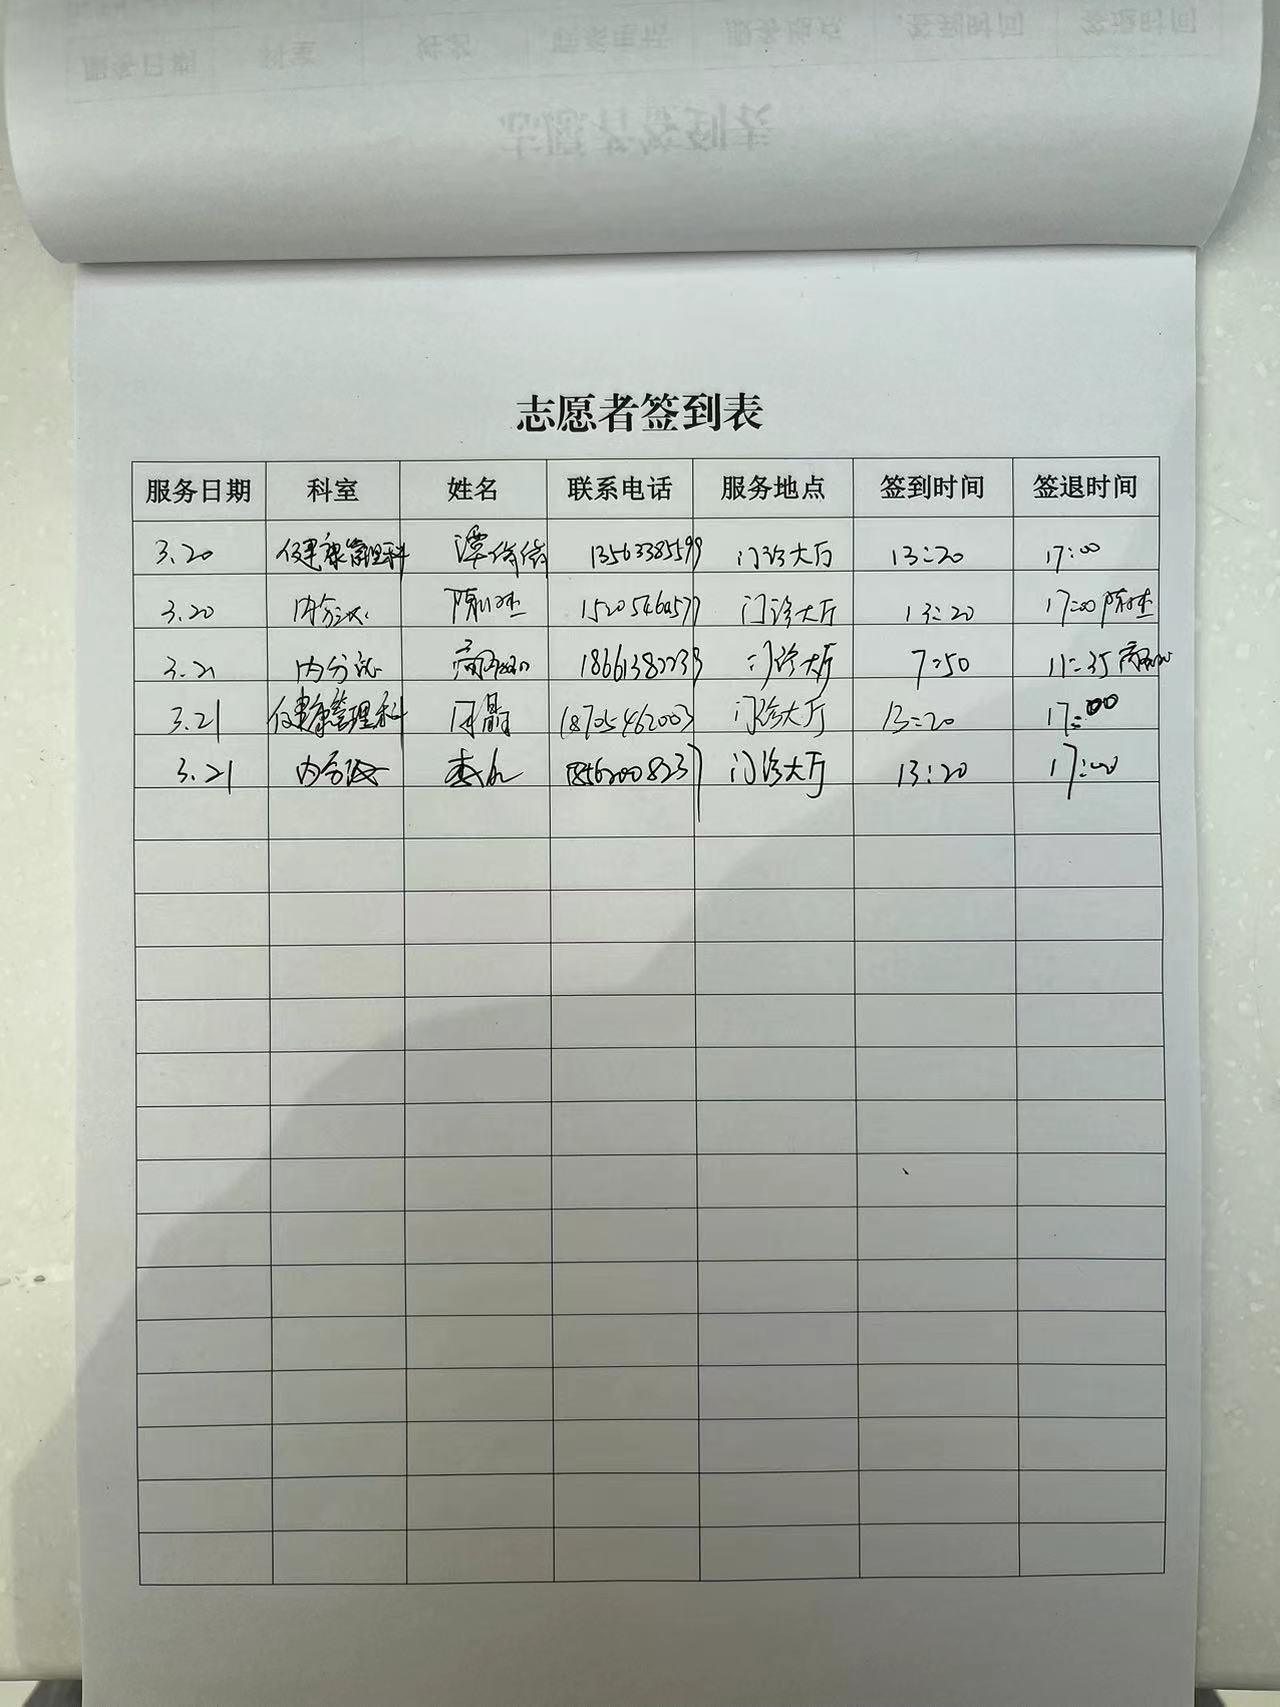 志愿者签到表
服务日期 科室 姓名 联系电话 服务地点 签到时间 签退时间
3.20 健康管理科 谭 13563385599 门诊大厅 13:20 17:00
3.20 内分泌 陈 门诊大厅 13:20 17:00 陈
3.21 内分泌 门诊大厅 7:50 11:35
3.21 健康管理科 闫晶 18705462003 门诊大厅 13:20 17:00
3.21 内分泌 18562008237 门诊大厅 13:20 17:00